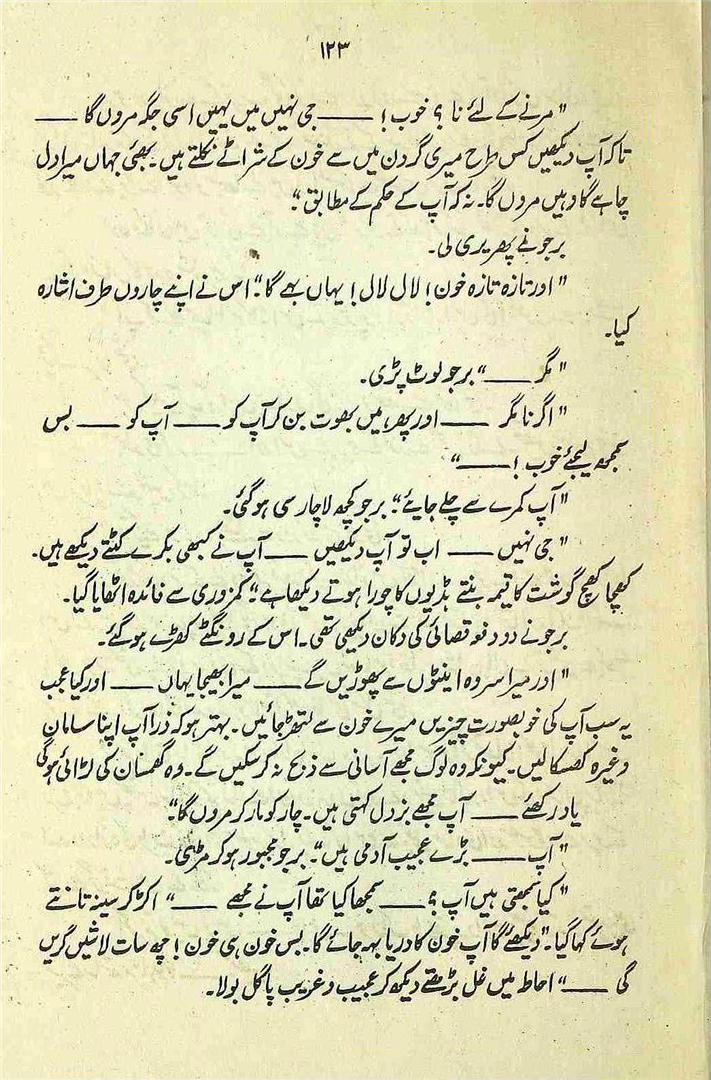 ۱۲۳
"مرنے کے لئے نا ؟ خوب ! ــــــ جی نہیں میں یہیں اسی جگہ مروں گا ــــــ
تاکہ آپ دیکھیں کس طرح میری گردن میں سے خون کے شراٹے نکلتے ہیں۔ بھئی جہاں میرا دل
چاہے گا وہیں مروں گا۔ نہ کہ آپ کے حکم کے مطابق"۔
برجو نے پھریری لی۔
"اور تازہ تازہ خون ! لال لال ! یہاں بہے گا"۔ اس نے اپنے چاروں طرف اشارہ
کیا۔
"مگر ــــــ" برجو لوٹ پڑی۔
"اگر نا مگر ــــــ اور پھر میں بھوت بن کر آپ کو ــــــ آپ کو ــــــ بس
سمجھ لیجئے خوب ! ــــــ"
"آپ کمرے سے چلے جایئے"۔ برجو کچھ لاچار سی ہو گئی۔
"جی نہیں ــــــ اب تو آپ دیکھیں ــــــ آپ نے کبھی بکرے کٹتے دیکھے ہیں۔
کھچا کھچ گوشت کا قیمہ بنتے ہڈیوں کا چورا ہوتے دیکھا ہے"۔ کمزوری سے فائدہ اٹھایا گیا۔
برجو نے دو دفعہ قصائی کی دکان دیکھی تھی۔ اس کے رونگٹے کھڑے ہو گئے۔
"اور میرا سر وہ اینٹوں سے پھوڑیں گے ــــــ میرا بھیجا یہاں ــــــ اور کیا عجب
یہ سب آپ کی خوبصورت چیزیں میرے خون سے لتھڑ جائیں۔ بہتر ہو کہ ذرا آپ اپنا سامان
وغیرہ کھسکا لیں۔ کیونکہ وہ لوگ مجھے آسانی سے ذبح نہ کر سکیں گے۔ وہ گھمسان کی لڑائی ہو گی
یاد رکھئے ــــــ آپ مجھے بزدل کہتی ہیں۔ چار کو مار کر مروں گا"۔
"آپ ــــــ بڑے عجیب آدمی ہیں"۔ برجو مجبور ہو کر مڑی۔
"کیا سمجھتی ہیں آپ ؟ ــــــ سمجھا کیا تھا آپ نے مجھے ــــــ" اکڑ کر سینہ تانتے
ہوئے کہا گیا۔ "دیکھئے گا آپ خون کا دریا بہہ جائے گا۔ بس خون ہی خون ! چھ سات لاشیں گریں
گی ــــــ" احاطہ میں غل بڑھتے دیکھ کر عجیب و غریب پاگل بولا۔